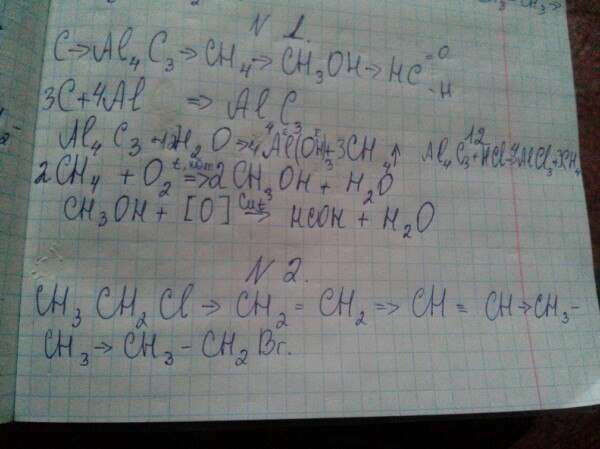 CH3-CH3→
N 1.
C→Al4C3→CH4→CH3OH→HC=O-H
3C+4Al ⇒ Al4C3
Al4C3+12H2O→4Al(OH)3+3CH4↑ Al4C3+12HCl→4AlCl3+3CH4
2CH4+O2 t,кат⇒2CH3OH+H2O
CH3OH+[O] Cu,t⇒ HCOH+H2O
N 2.
CH3CH2Cl→CH2=CH2⇒CH≡CH→CH3-
CH3→CH3-CH2Br.